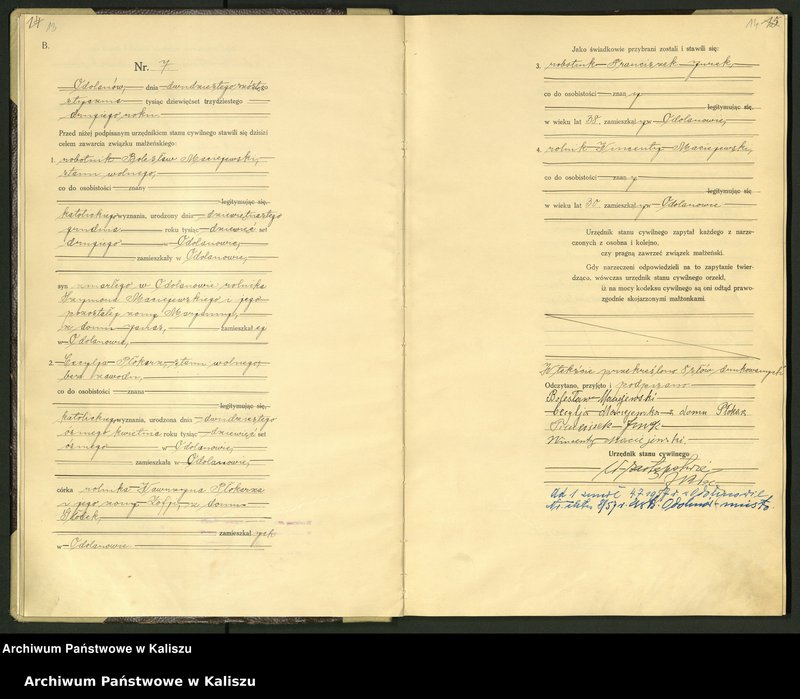 14
13
B.
Nr. 7
Odolanów, dnia dwudziestego szóstego
stycznia tysiąc dziewięćset trzydziestego
drugiego roku
Przed niżej podpisanym urzędnikiem stanu cywilnego stawili się dzisiaj
celem zawarcia związku małżeńskiego:
1. robotnik Bolesław Maciejewski,
stanu wolnego,
co do osobistości znany
legitymując się,
katolickiego wyznania, urodzony dnia dziewiętnastego
grudnia roku tysiąc dziewięć set
drugiego w Odolanowie,
zamieszkały w Odolanowie,
syn zmarłego w Odolanowie rolnika
Szymona Maciejewskiego i jego
pozostałej żony Marjanny,
z domu zamieszkałej
w Odolanowie,
2. Cecylja Płókarz, stanu wolnego,
bez zawodu,
co do osobistości znana
legitymując się,
katolickiego wyznania, urodzona dnia dwudziestego
ósmego kwietnia roku tysiąc dziewięć set
ósmego w Odolanowie,
zamieszkała w Odolanowie,
córka rolnika Wawrzyna Płókarza
i jego żony Zofji, z domu
zamieszkałych
w Odolanowie.
14
15
Jako świadkowie przybrani zostali i stawili się:
3. robotnik Franciszek
co do osobistości znany
legitymując się,
w wieku lat 38 zamieszkały w Odolanowie,
4. rolnik Wincenty Maciejewski,
co do osobistości znany
legitymując się,
w wieku lat 30 zamieszkały w Odolanowie
Urzędnik stanu cywilnego zapytał każdego z narze-
czonych z osobna i kolejno,
czy pragną zawrzeć związek małżeński.
Gdy narzeczeni odpowiedzieli na to zapytanie twier-
dząco, wówczas urzędnik stanu cywilnego orzekł,
iż na mocy kodeksu cywilnego są oni odtąd prawo-
zgodnie skojarzonymi małżonkami.
W tekście przekreślono 8 słów drukowanych
Odczytano, przyjęto i podpisano
Bolesław Maciejewski
Cecylja Maciejewska z domu Płókarz
Franciszek
Wincenty Maciejewski
Urzędnik stanu cywilnego
w zastępstwie
Ad 1 zmarł 4.7.1957 r. w Odolanowie
Nr. aktu 8/57 r. Odolanów - miasto.
Archiwum Państwowe w Kaliszu
Archiwum Państwowe w Kaliszu